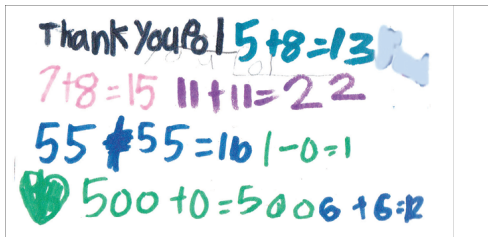 Thank You 5+8=13
7+8=15 11+11=22
55 55=16 1-0=1
500+0=500 6+6=12